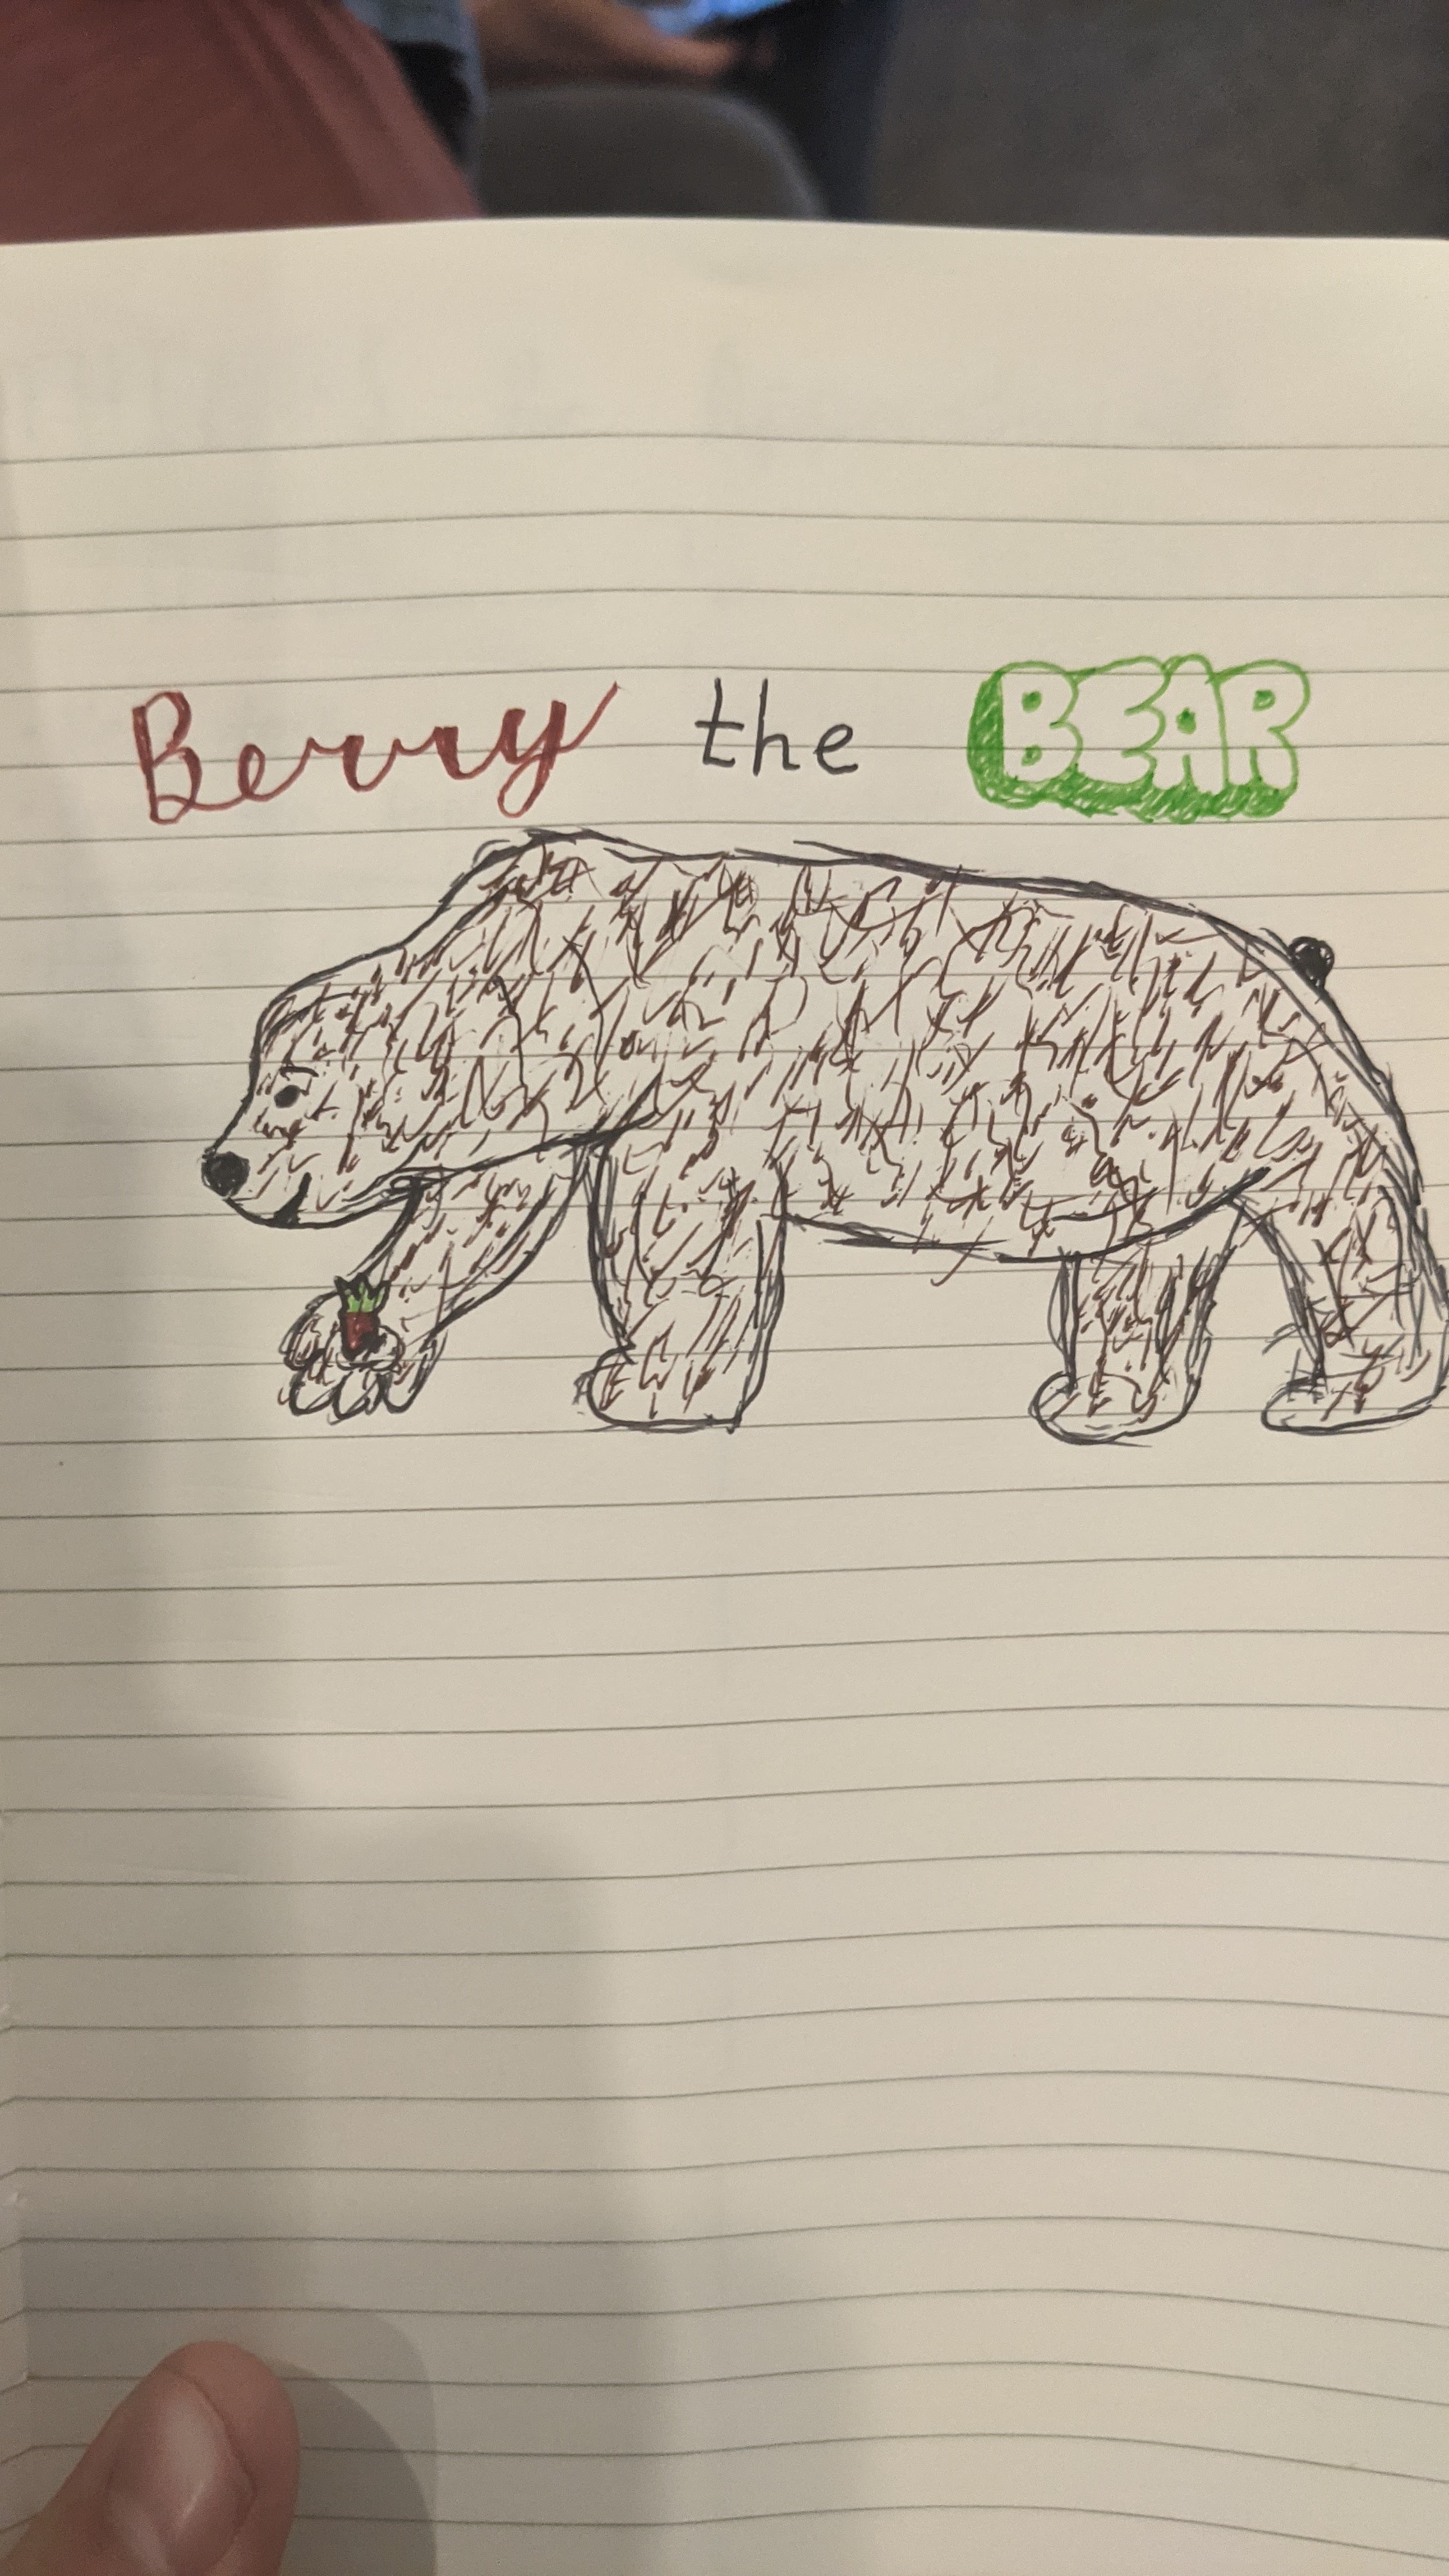 Berry the BEAR